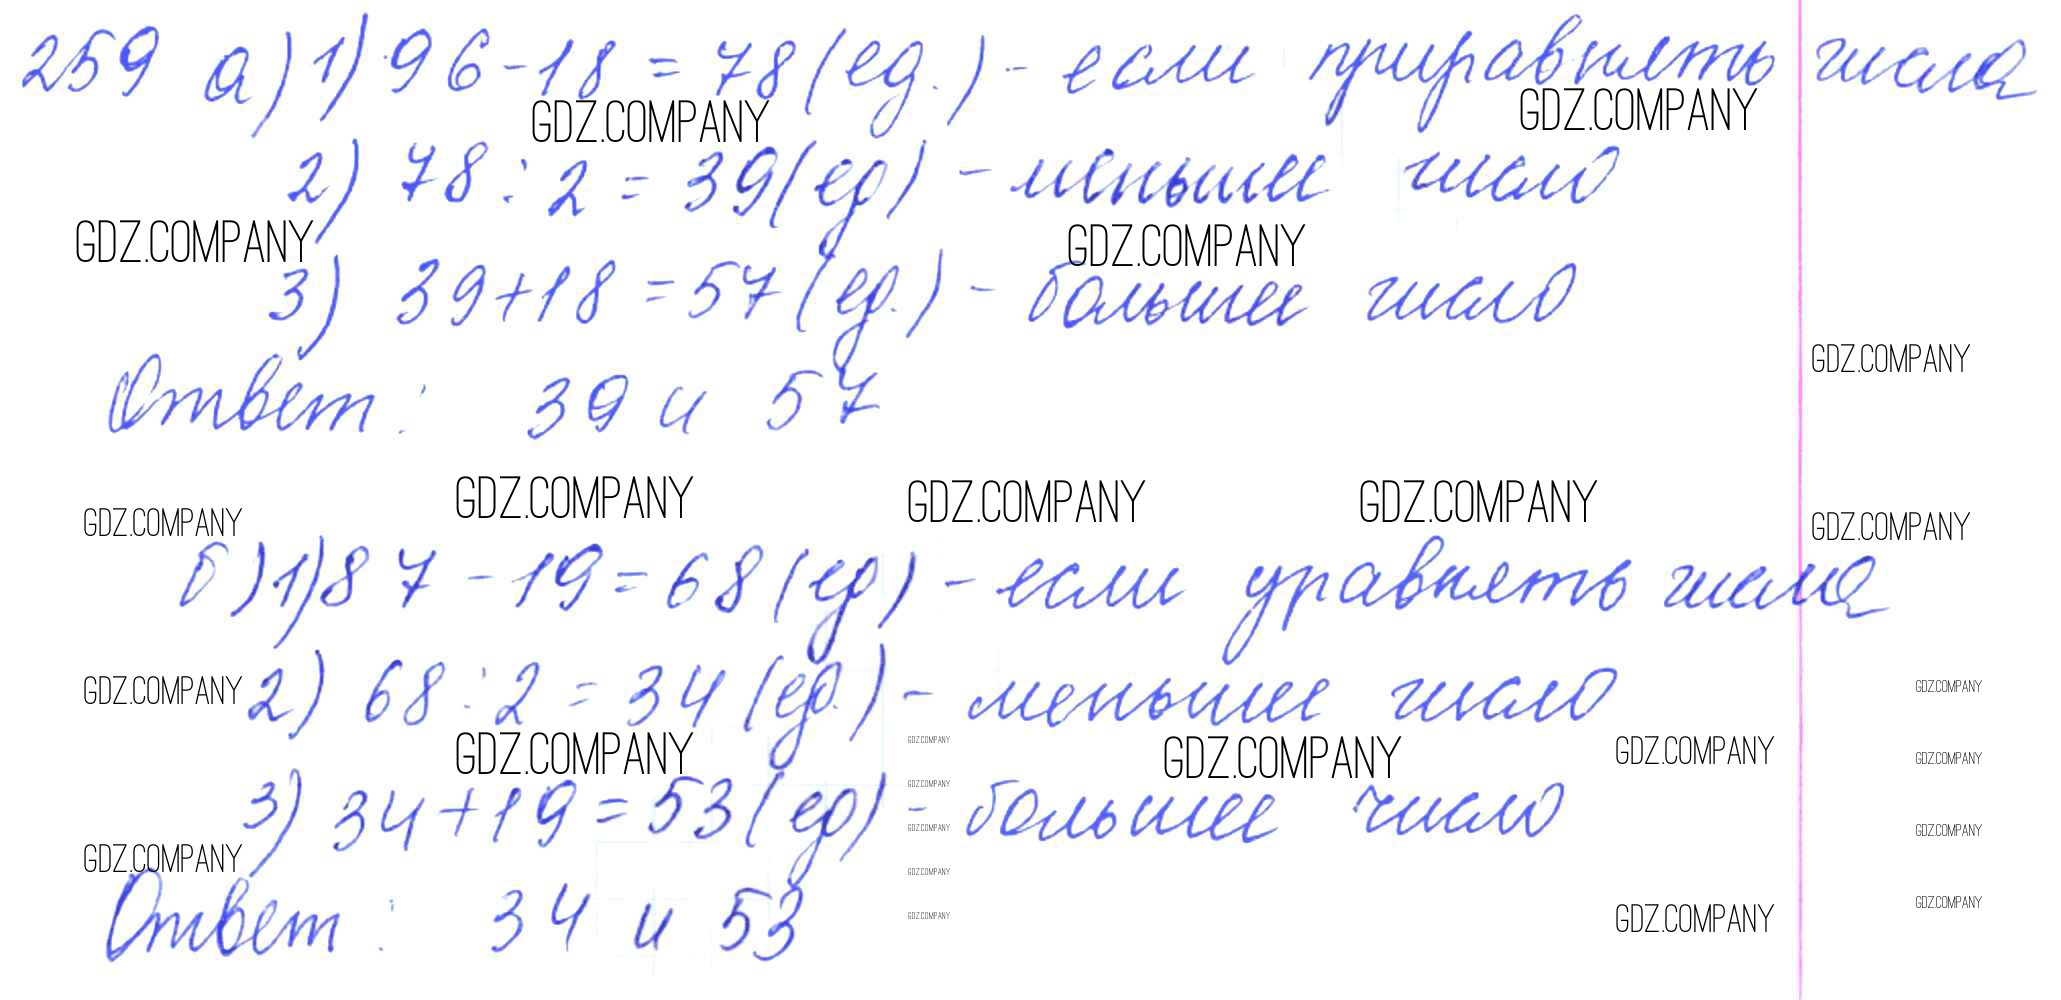 259 а) 1) 96 - 18 = 78 (ед.) - если приравнять числа
GDZ.COMPANY GDZ.COMPANY
2) 78 : 2 = 39 (ед) - меньшее число
GDZ.COMPANY GDZ.COMPANY
3) 39 + 18 = 57 (ед.) - большее число
GDZ.COMPANY
Ответ: 39 и 57
GDZ.COMPANY GDZ.COMPANY GDZ.COMPANY GDZ.COMPANY GDZ.COMPANY
б) 1) 87 - 19 = 68 (ед) - если уравнять числа
2) 68 : 2 = 34 (ед.) - меньшее число
GDZ.COMPANY GDZ.COMPANY
GDZ.COMPANY GDZ.COMPANY GDZ.COMPANY GDZ.COMPANY GDZ.COMPANY
GDZ.COMPANY
3) 34 + 19 = 53 (ед) - большее число
GDZ.COMPANY GDZ.COMPANY
GDZ.COMPANY GDZ.COMPANY
Ответ: 34 и 53
GDZ.COMPANY GDZ.COMPANY GDZ.COMPANY